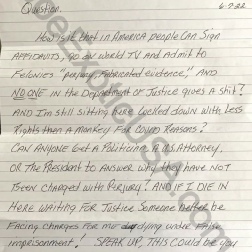 Question. 6-7-22
How is it that in America people can sign
Affidavits, go on World TV and Admit to
Felonies "perjury, fabricated evidence," AND
NO ONE in the Department of Justice gives a shit?
And I'm still sitting here locked down with Less
Rights then a Monkey for COVID Reasons?
Can anyone get a Politician, a US Attorney,
or The President to answer why they have not
been charged with Perjury? And if I die in
here waiting for Justice someone better be
facing charges for me dying under false
imprisonment! SPEAK UP, This could be you